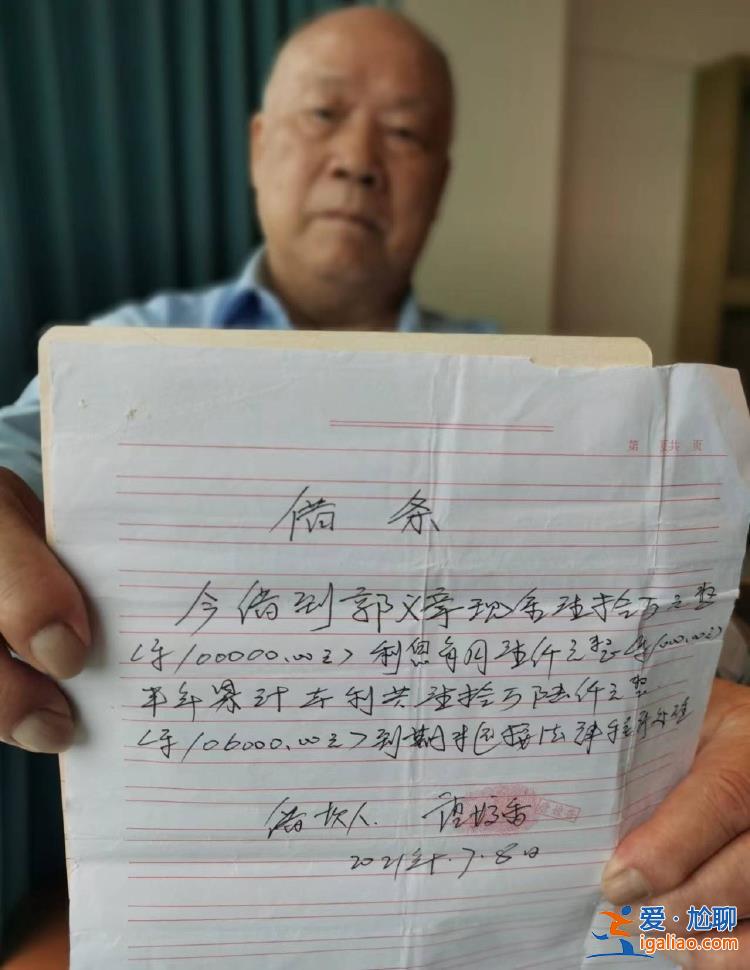 第 页共 页
借 条
今借到郭义章现金壹拾万元整
<¥100000.00元> 利息每月壹仟元整<¥1000.00元>
半年累计本利共壹拾万陆仟元整
<¥106000.00元>到期
借款人.
2021年.7.8日
爱·尬聊
igaliao.com